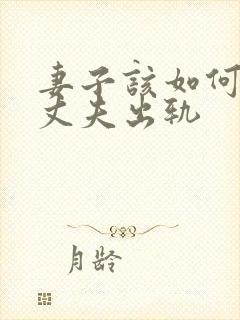 妻子該如何
丈夫出轨
月龄